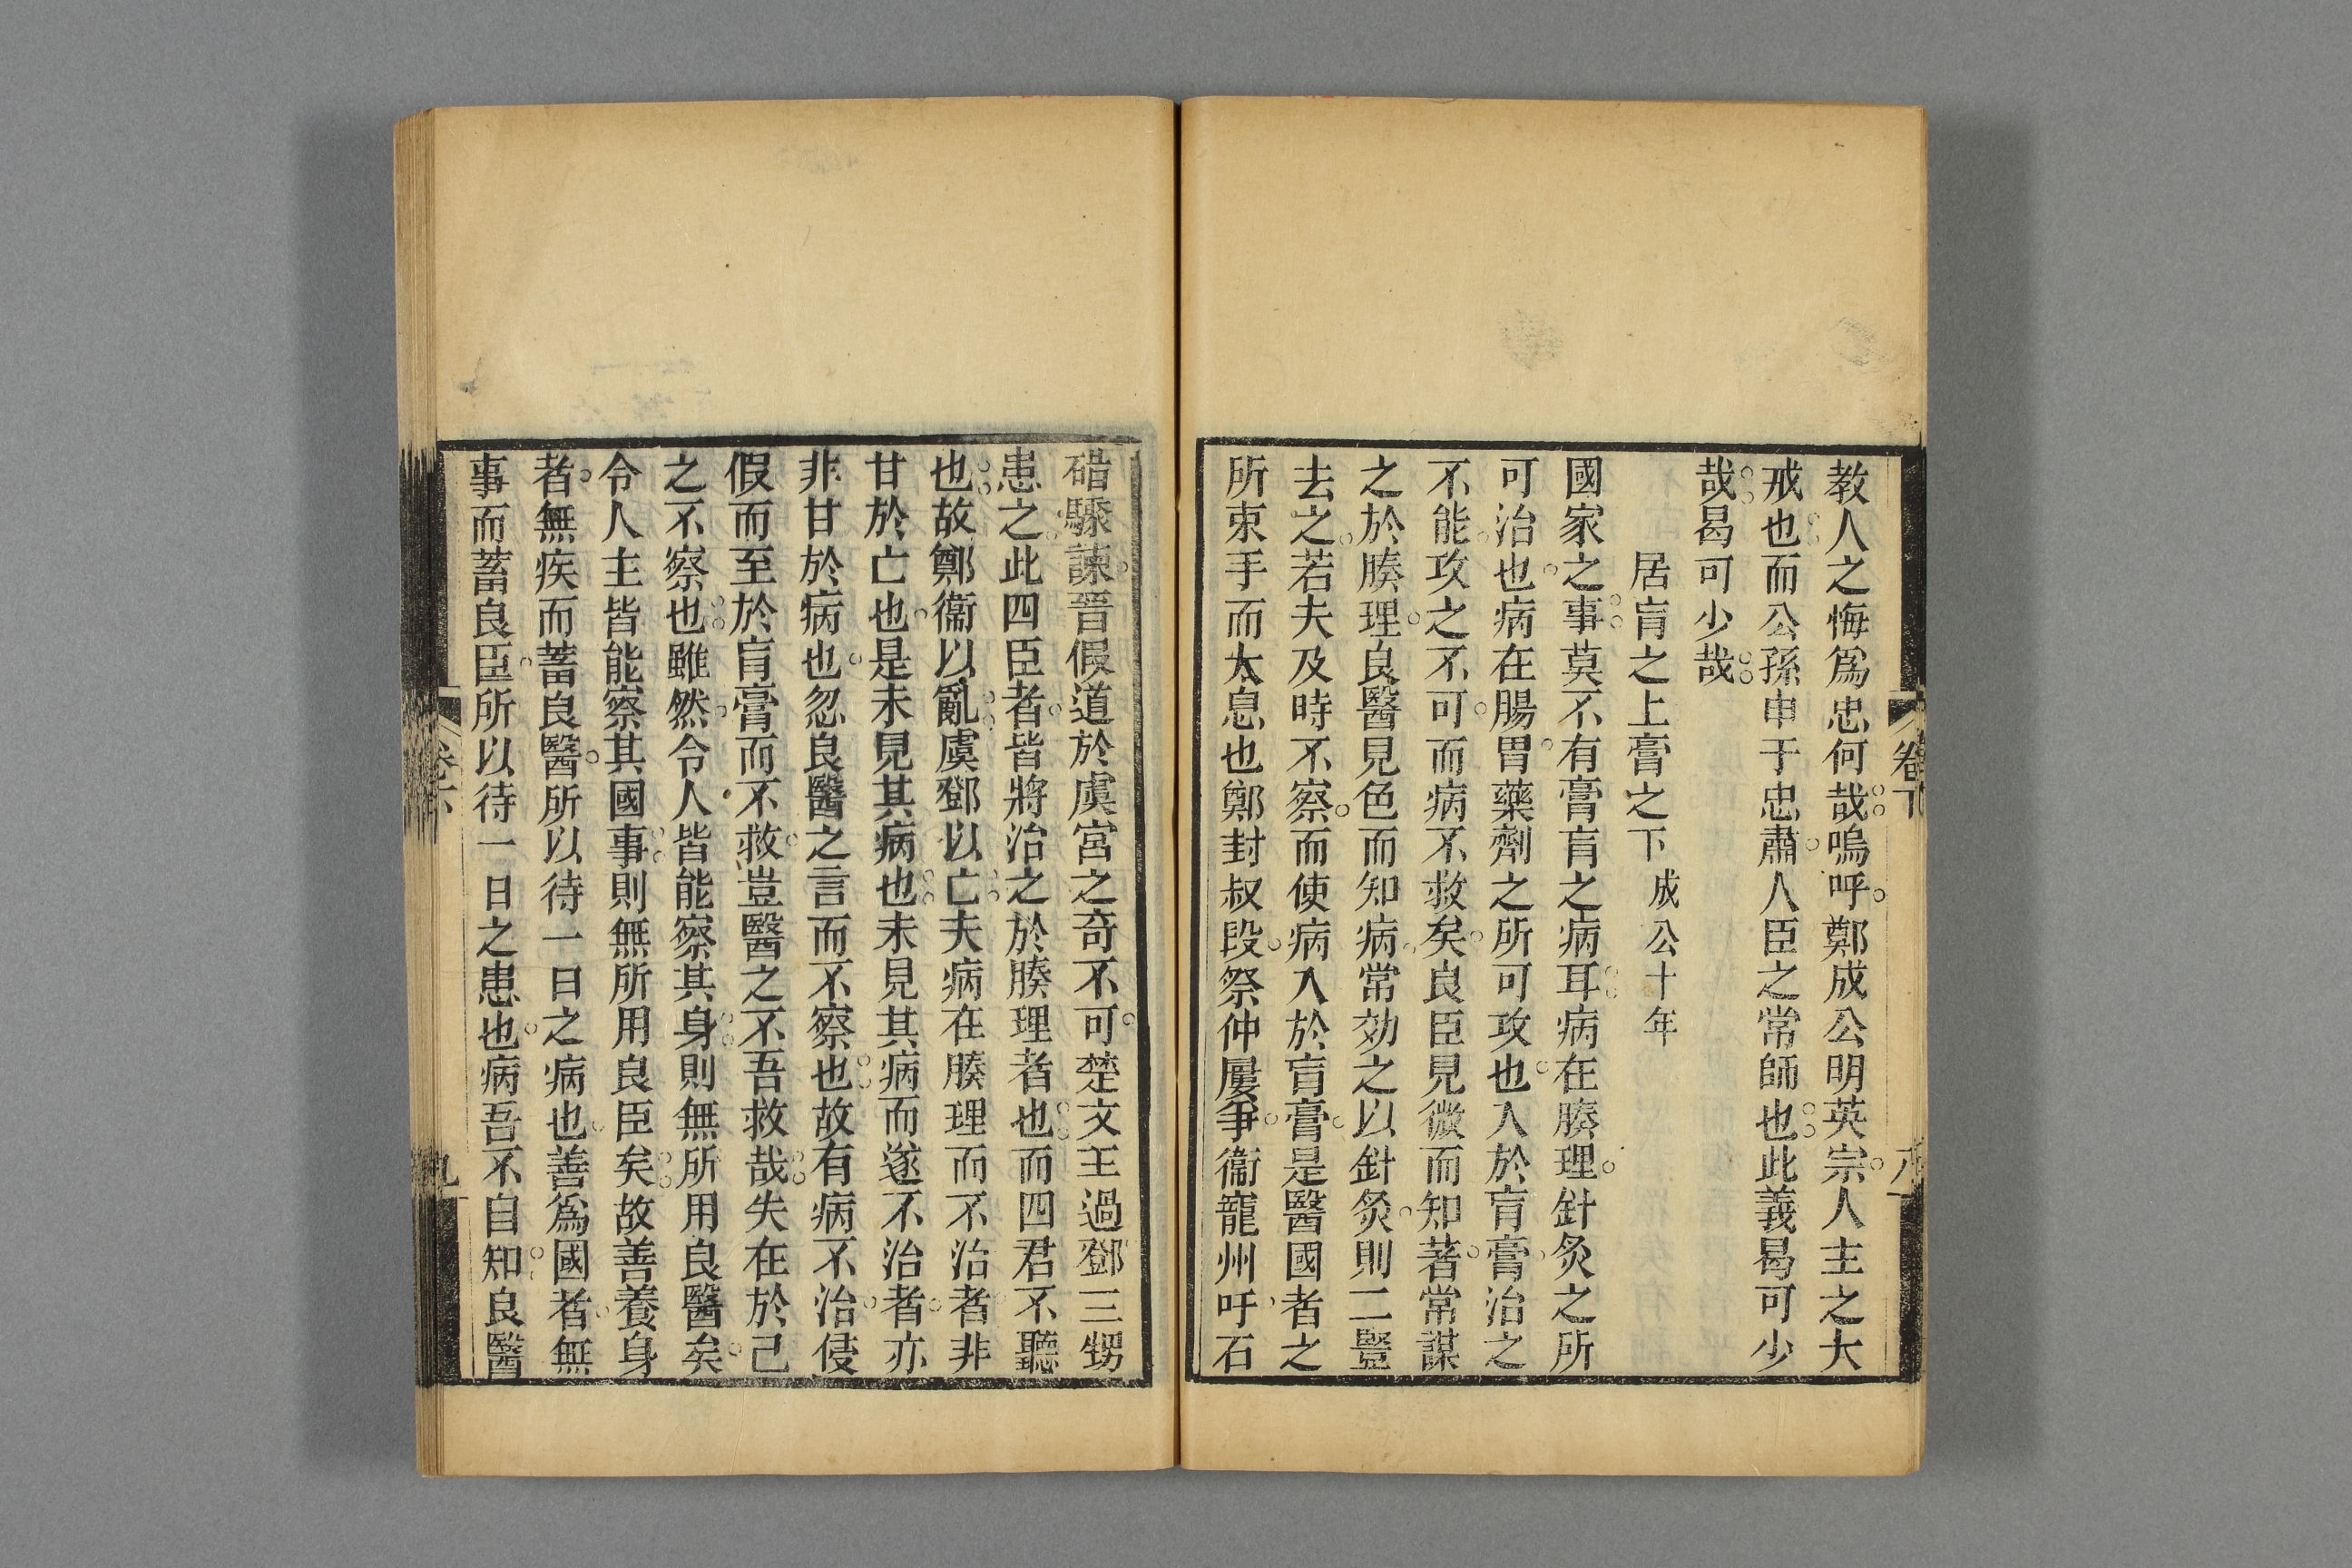 教人之悔爲忠何哉嗚呼鄭成公明英宗人主之大
戒也而公孫申于忠肅人臣之常師也此義曷可少
哉曷可少哉
居肓之上膏之下成公十年
國家之事莫不有膏肓之病耳病在腠理針灸之所
可治也病在腸胃藥劑之所可攻也入於肓膏治之
不能攻之不可而病不救矣良臣見微而知著常謀
之於腠理良醫見色而知病常効之以針灸則二豎
去之若夫及時不察而使病入於肓膏是醫國者之
所束手而太息也鄭封叔段祭仲屢爭衞寵州吁石
碏驟諫晉假道於虞宮之奇不可楚文王過鄧三甥
患之此四臣者皆將治之於腠理者也而四君不聽
也故鄭衞以亂虞鄧以亡夫病在腠理而不治者非
甘於亡也是未見其病也未見其病而遂不治者亦
非甘於病也忽良醫之言而不察也故有病不治侵
假而至於肓膏而不救豈醫之不吾救哉失在於己
之不察也雖然令人皆能察其身則無所用良醫矣
令人主皆能察其國事則無所用良臣矣故善養身
者無疾而蓄良醫所以待一日之病也善爲國者無
事而蓄良臣所以待一日之患也病吾不自知良醫
卷下
八
九